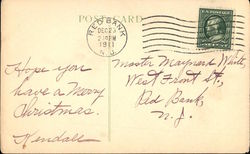 POST CARD
RED BANK
DEC 23
2 30 PM
1911
N.J.
Hope you
have a Merry
Christmas.
Kendall
Master Maynard White
West Front St.,
Red Bank,
N.J.